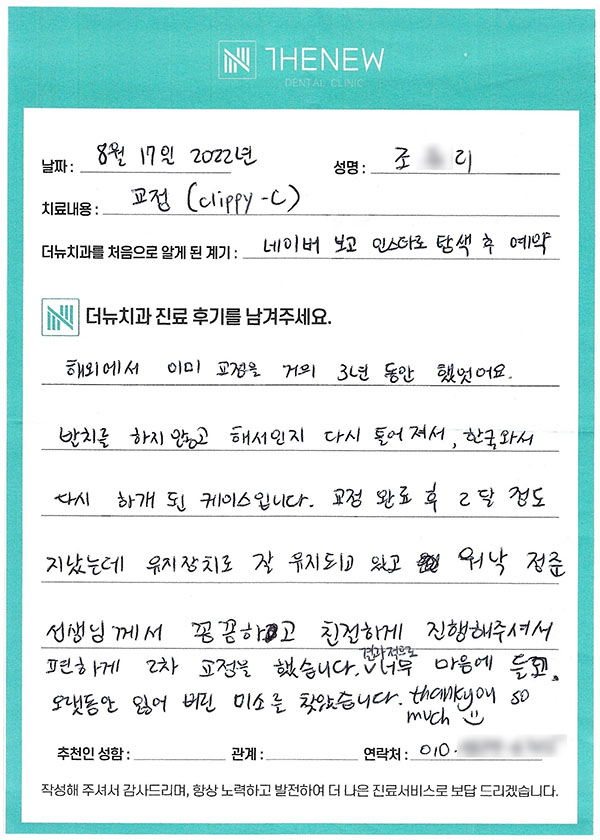 THENEW
DENTAL CLINIC
날짜 : 8월 17일 2022년 성명 : 조 리
치료내용 : 교정 (clippy-c)
더뉴치과를 처음으로 알게 된 계기 : 네이버 보고 인스타로 탐색 후 예약
더뉴치과 진료 후기를 남겨주세요.
해외에서 이미 교정을 거의 3년 동안 했었어요.
발치를 하지 않고 해서인지 다시 틀어져서, 한국와서
다시 하개 된 케이스입니다. 교정 완료 후 2달 정도
지났는데 유지장치로 잘 유지되고 있고 워낙 정준
선생님께서 꼼꼼하고 친절하게 진행해주셔서
편하게 2차 교정을 했습니다. 결과적으로 너무 마음에 들고.
오랫동안 잃어 버린 미소를 찾았습니다. thankyou so
much
추천인 성함 : 관계 : 연락처 : 010.
작성해 주셔서 감사드리며, 항상 노력하고 발전하여 더 나은 진료서비스로 보답 드리겠습니다.